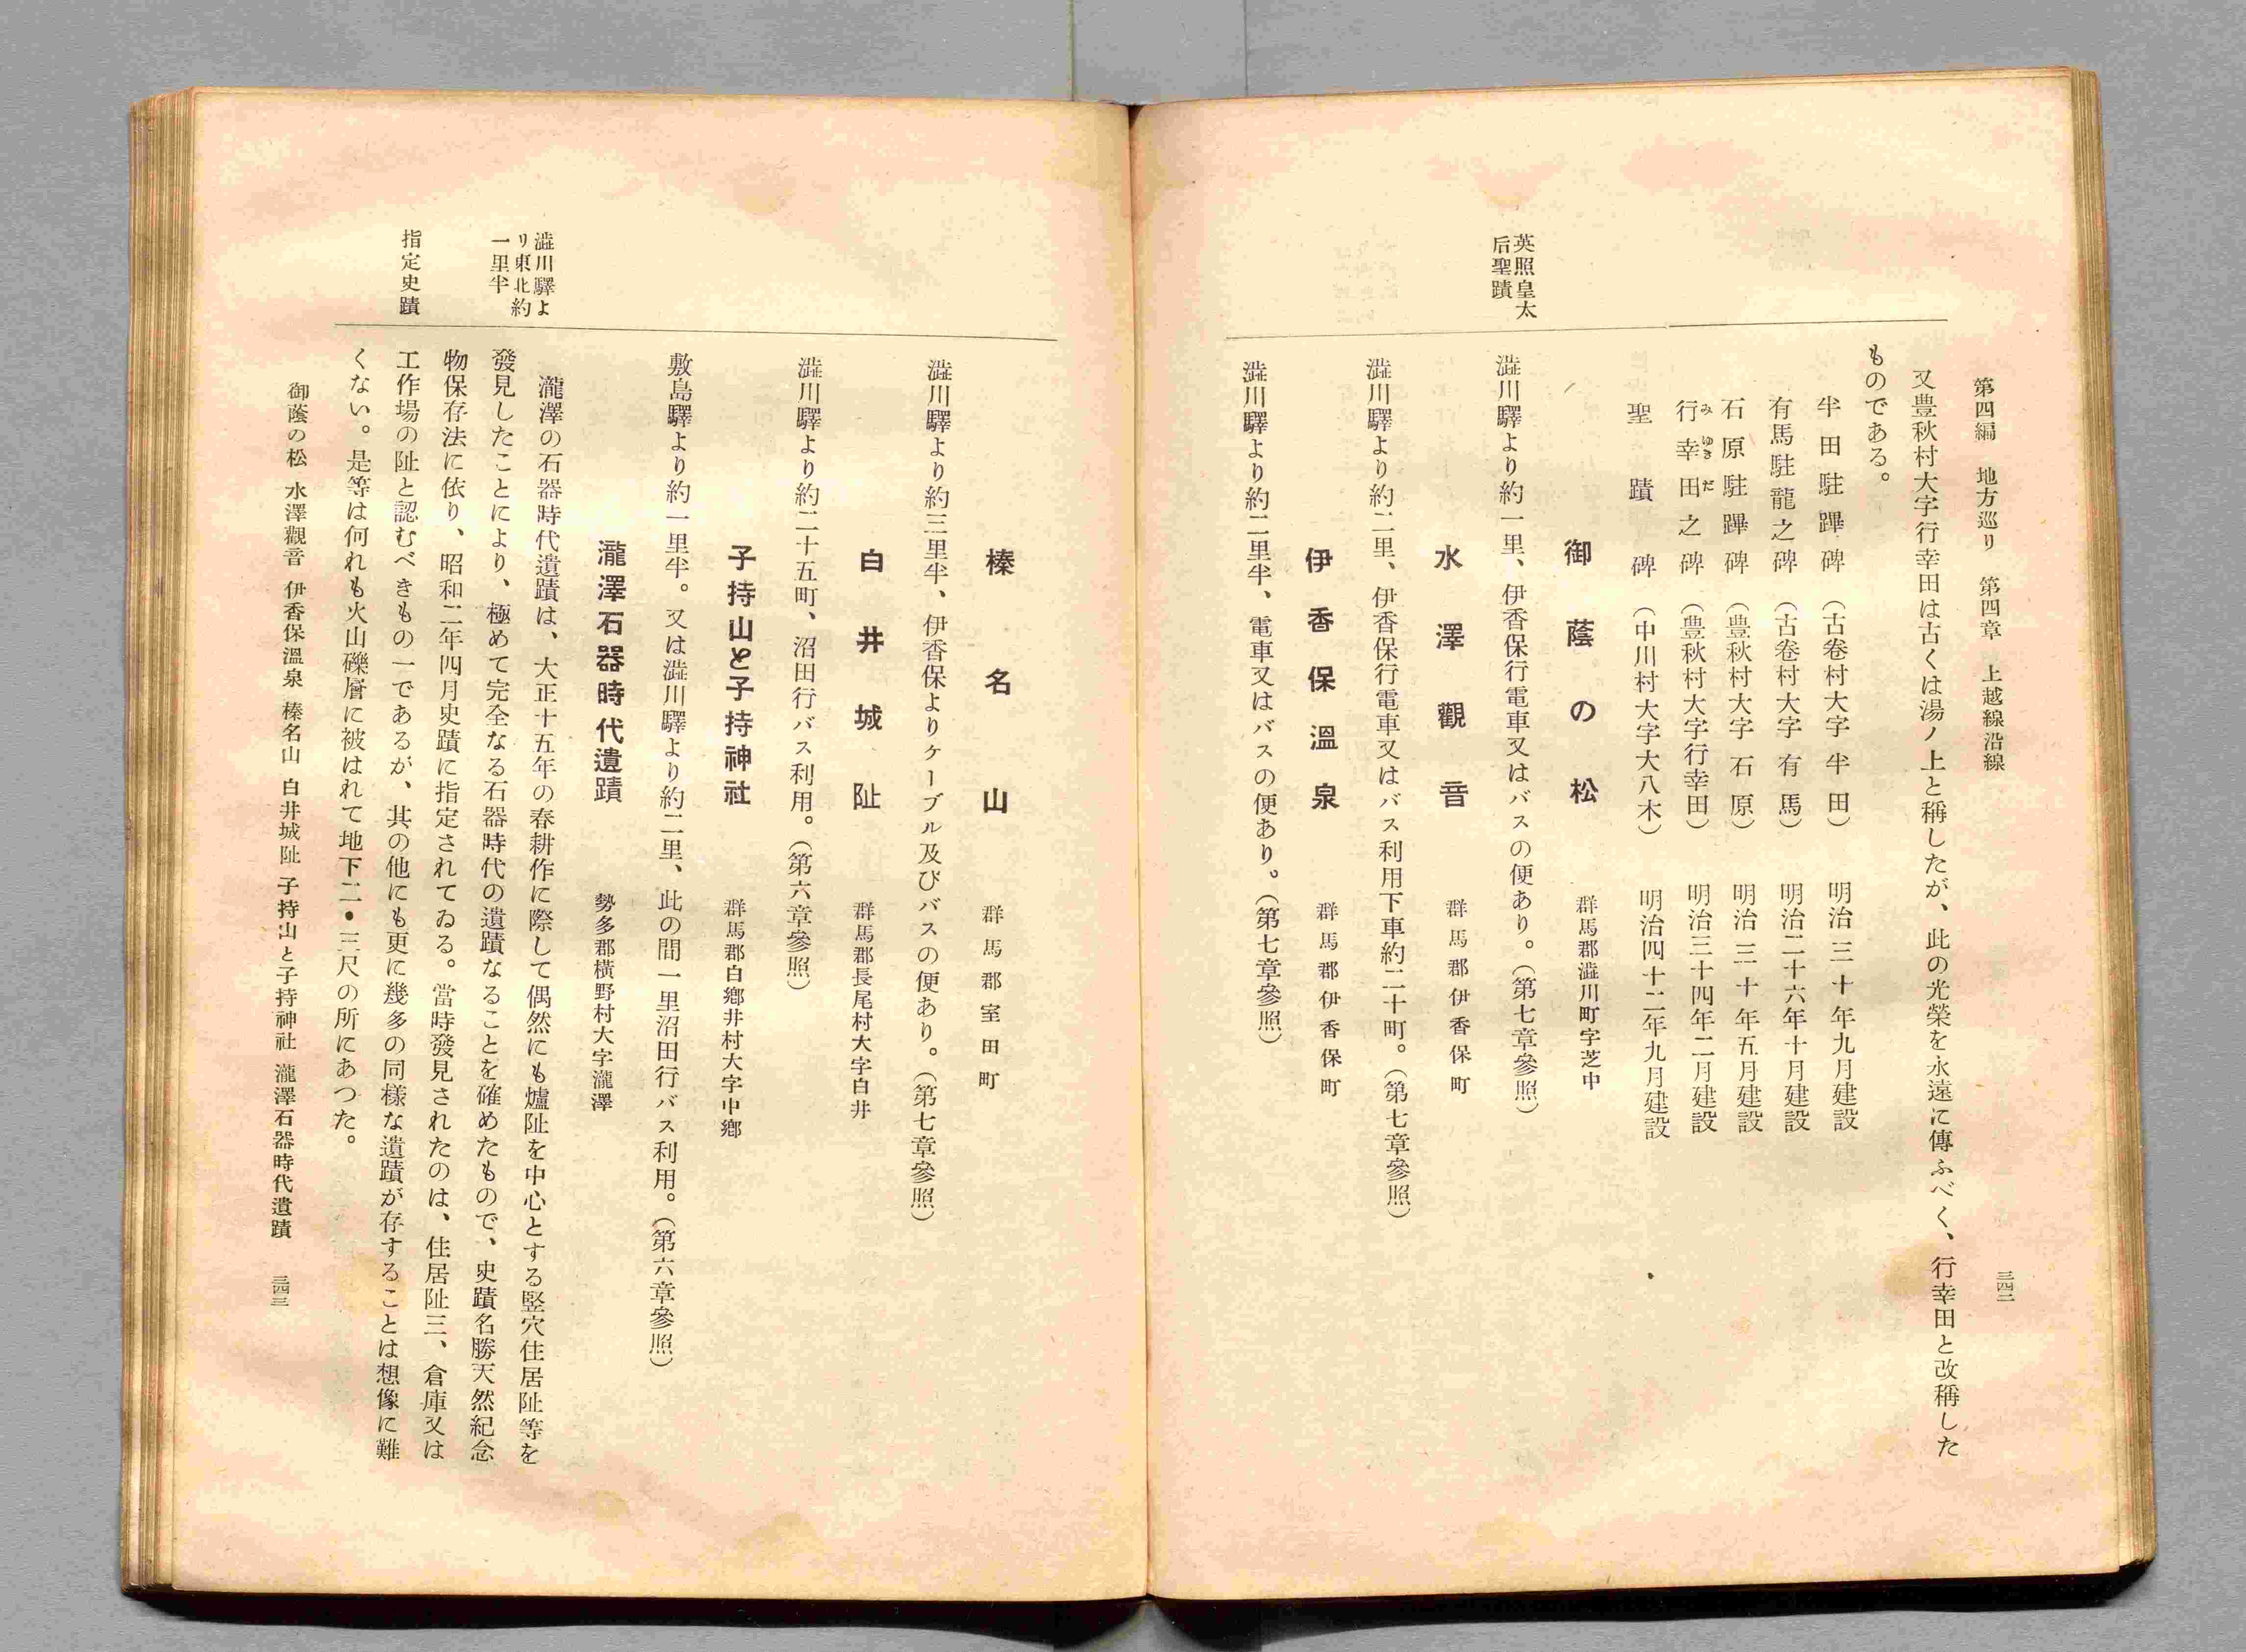 第四編　地方巡り　第四章　上越線沿線
三四二
又豊秋村大字行幸田は古くは湯ノ上と稱したが、此の光榮を永遠に傳ふべく、行幸田と改稱した
ものである。
半田駐蹕碑（古卷村大字半田）明治三十年九月建設
有馬駐龍之碑（古卷村大字有馬）明治二十六年十月建設
石原駐蹕碑（豊秋村大字石原）明治三十年五月建設
行幸田之碑（豊秋村大字行幸田）明治三十四年二月建設
みゆきだ
聖蹟碑（中川村大字大八木）明治四十二年九月建設
御蔭の松　群馬郡澁川町字芝中
英照皇太
后聖蹟
澁川驛より約一里、伊香保行電車又はバスの便あり。（第七章參照）
水澤觀音　群馬郡伊香保町
澁川驛より約二里、伊香保行電車又はバス利用下車約二十町。（第七章參照）
伊香保溫泉　群馬郡伊香保町
澁川驛より約二里半、電車又はバスの便あり。（第七章參照）
榛名山　群馬郡室田町
澁川驛より約三里半、伊香保よりケーブル及びバスの便あり。（第七章參照）
白井城阯　群馬郡長尾村大字白井
澁川驛より約二十五町、沼田行バス利用。（第六章參照）
子持山と子持神社　群馬郡白鄕井村大字中鄕
敷島驛より約一里半。又は澁川驛より約二里、此の間一里沼田行バス利用。（第六章參照）
瀧澤石器時代遺蹟　勢多郡橫野村大字瀧澤
澁川驛よ
り東北約
一里半
瀧澤の石器時代遺蹟は、大正十五年の春耕作に際して偶然にも爐阯を中心とする竪穴住居阯等を
發見したことにより、極めて完全なる石器時代の遺蹟なることを確めたもので、史蹟名勝天然紀念
物保存法に依り、昭和二年四月史蹟に指定されてゐる。當時發見されたのは、住居阯三、倉庫又は
指定史蹟
工作場の阯と認むべきもの一であるが、其の他にも更に幾多の同樣な遺蹟が存することは想像に難
くない。是等は何れも火山礫層に被はれて地下二・三尺の所にあつた。
御蔭の松　水澤觀音　伊香保溫泉　榛名山　白井城阯　子持山と子持神社　瀧澤石器時代遺蹟
三四三